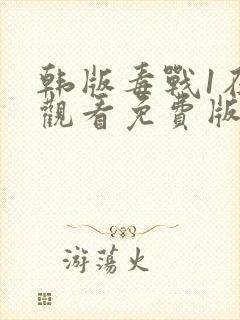 韩版毒戰1在
觀看免費版
游蕩火